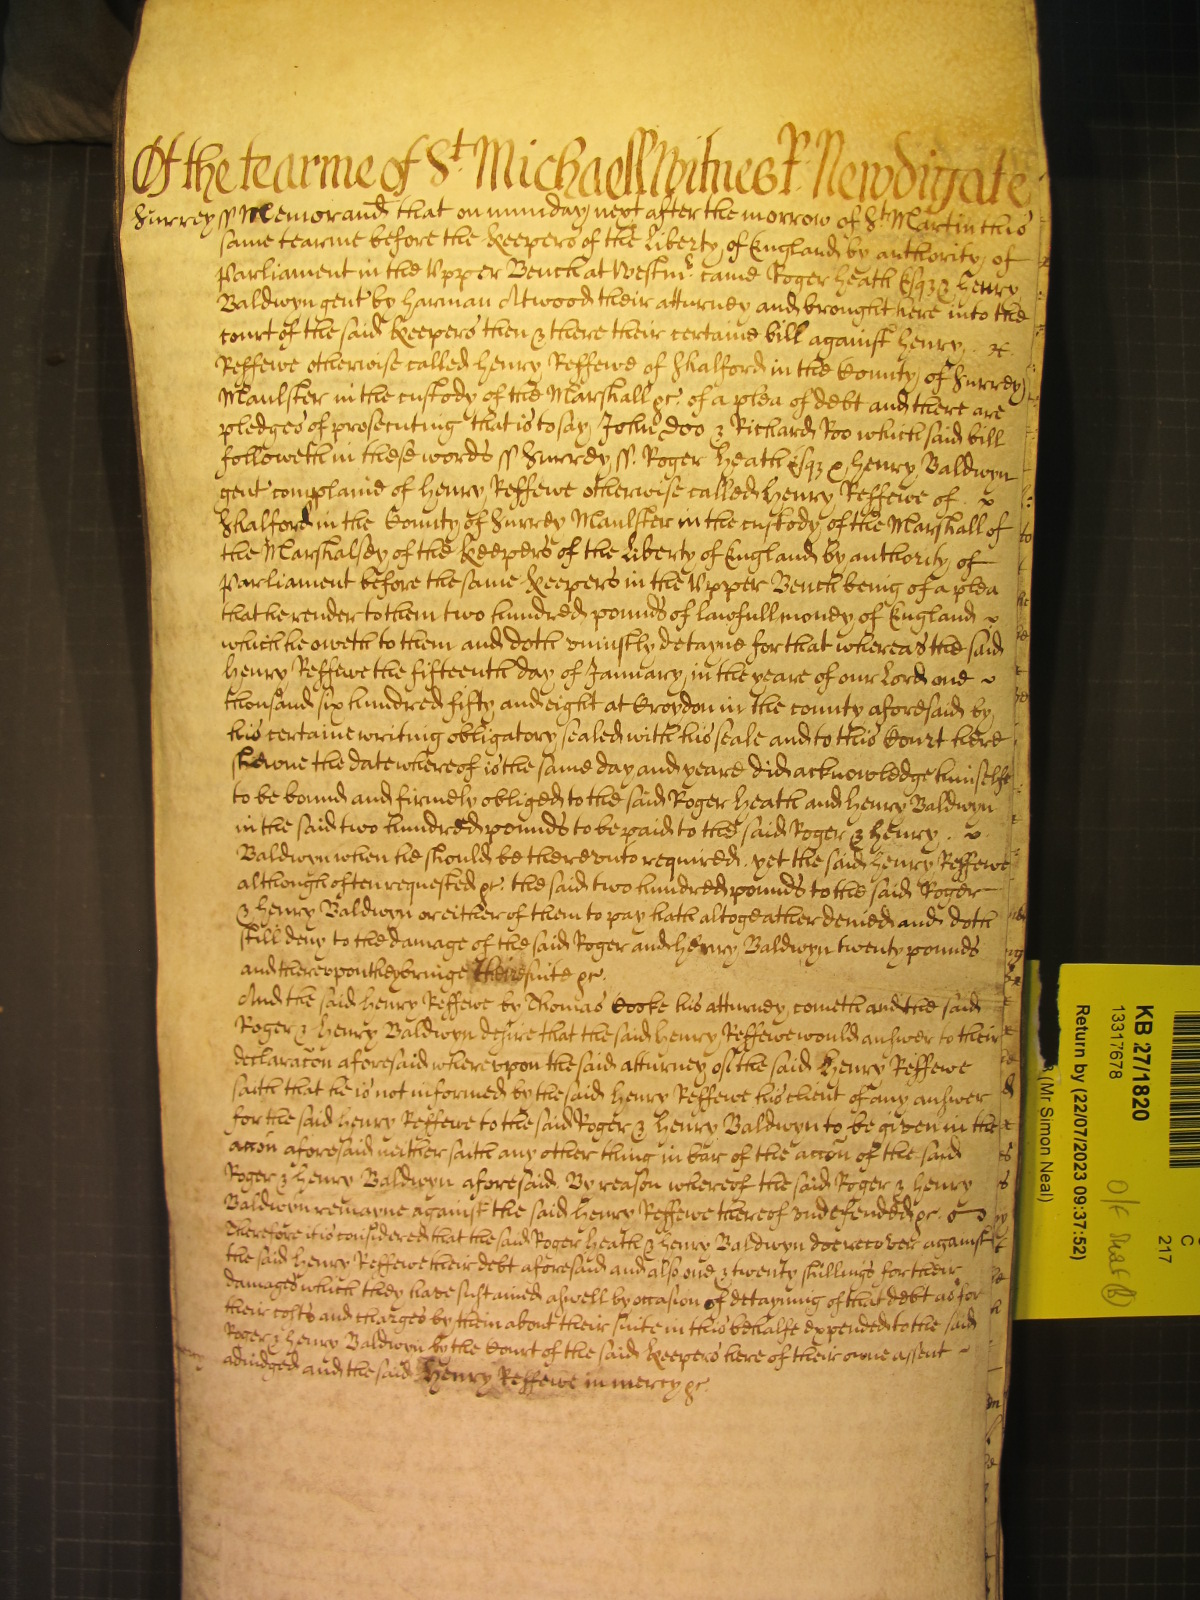 Of the tearme of St. Michaell Witnes R. Newdigate
Surrey ss Memorand that on munday next after the morrow of St Martin this
same tearme before the Keepers of the Liberty of England by authority of
Parliament in the Upper Bench at Westmr. came Roger Heath Esqz & Henry
Baldwyn gent by Harman Atwood their atturney and brought here into the
court of the said Keepers then & there their certaine bill against Henry
Reffewe otherwise called Henry Reffewe of Shalford in the County of Surrey
Maulster in the custody of the Marshall &c. of a plea of debt and there are
pledges of prosecuting that is to say John Doo & Richard Roo which said bill
followeth in these words ss Surrey ss. Roger Heath Esqz & Henry Baldwyn
gent complaine of Henry Reffewe otherwise called Henry Reffewe of
Shalford in the County of Surrey Maulster in the custody of the Marshall of
the Marshalsey of the Keepers of the Liberty of England by authority of
Parliament before the same Keepers in the Upper Bench being of a plea
that he render to them two hundred pounds of lawfull money of England
which he oweth to them and doth uniustly detayne for that whereas the said
Henry Reffewe the fifteenth day of January in the yeare of our Lord one
thousand six hundred fifty and eight at Croydon in the county aforesaid by
his certaine writing obligatory sealed with his seale and to this Court here
shewne the date whereof is the same day and yeare did acknowledge himselfe
to be bound and firmely obliged to the said Roger Heath and Henry Baldwyn
in the said two hundred pounds to be paid to the said Roger & Henry
Baldwyn when he should be thereunto required. yet the said Henry Reffewe
although often requested &c. the said two hundred pounds to the said Roger
& Henry Baldwyn or either of them to pay hath altogeather denied and doth
still deny to the damage of the said Roger and Henry Baldwyn twenty pounds
and thereupon they bringe their suite &c.
And the said Henry Reffewe by Thomas Cooke his atturney cometh and the said
Roger & Henry Baldwyn desire that the said Henry Reffewe would answer to their
declaracon aforesaid whereupon the said atturney of the said Henry Reffewe
saith that he is not informed by the said Henry Reffewe his client of any answer
for the said Henry Reffewe to the said Roger & Henry Baldwyn to be given in the
accon aforesaid neither saith any other thing in bar of the accon of the said
Roger & Henry Baldwyn aforesaid. By reason whereof the said Roger & Henry
Baldwyn remayne against the said Henry Reffewe thereof undefended &c.
Therefore it is considered that the said Roger Heath & Henry Baldwyn doe recover against
the said Henry Reffewe their debt aforesaid and also one & twenty shillings for their
damages which they have sustained aswell by occasion of detayning of that debt as for
their costs and charges by them about their suite in this behalfe expended to the said
Roger & Henry Baldwyn by the Court of the said Keepers here of their owne assent
adiudged and the said Henry Reffewe in mercy &c.
KB 27/1820
13317678
Return by (22/07/2023 09:37:52)
(Mr Simon Neal)
C
217